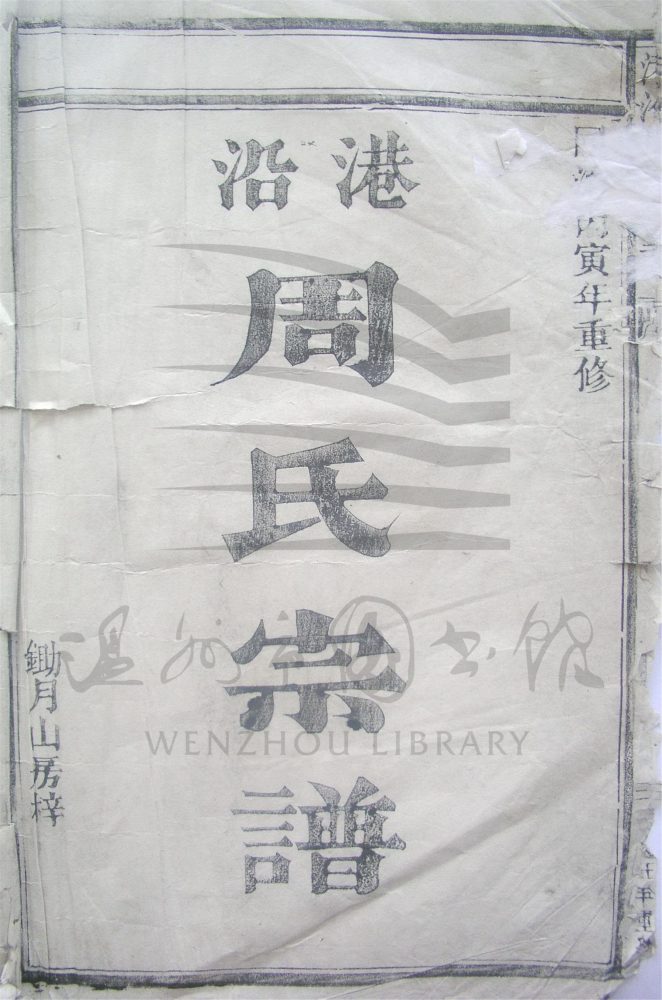 丙寅年重修
港沿
周氏宗譜
鋤月山房梓
温州市图书馆
WENZHOU LIBRARY